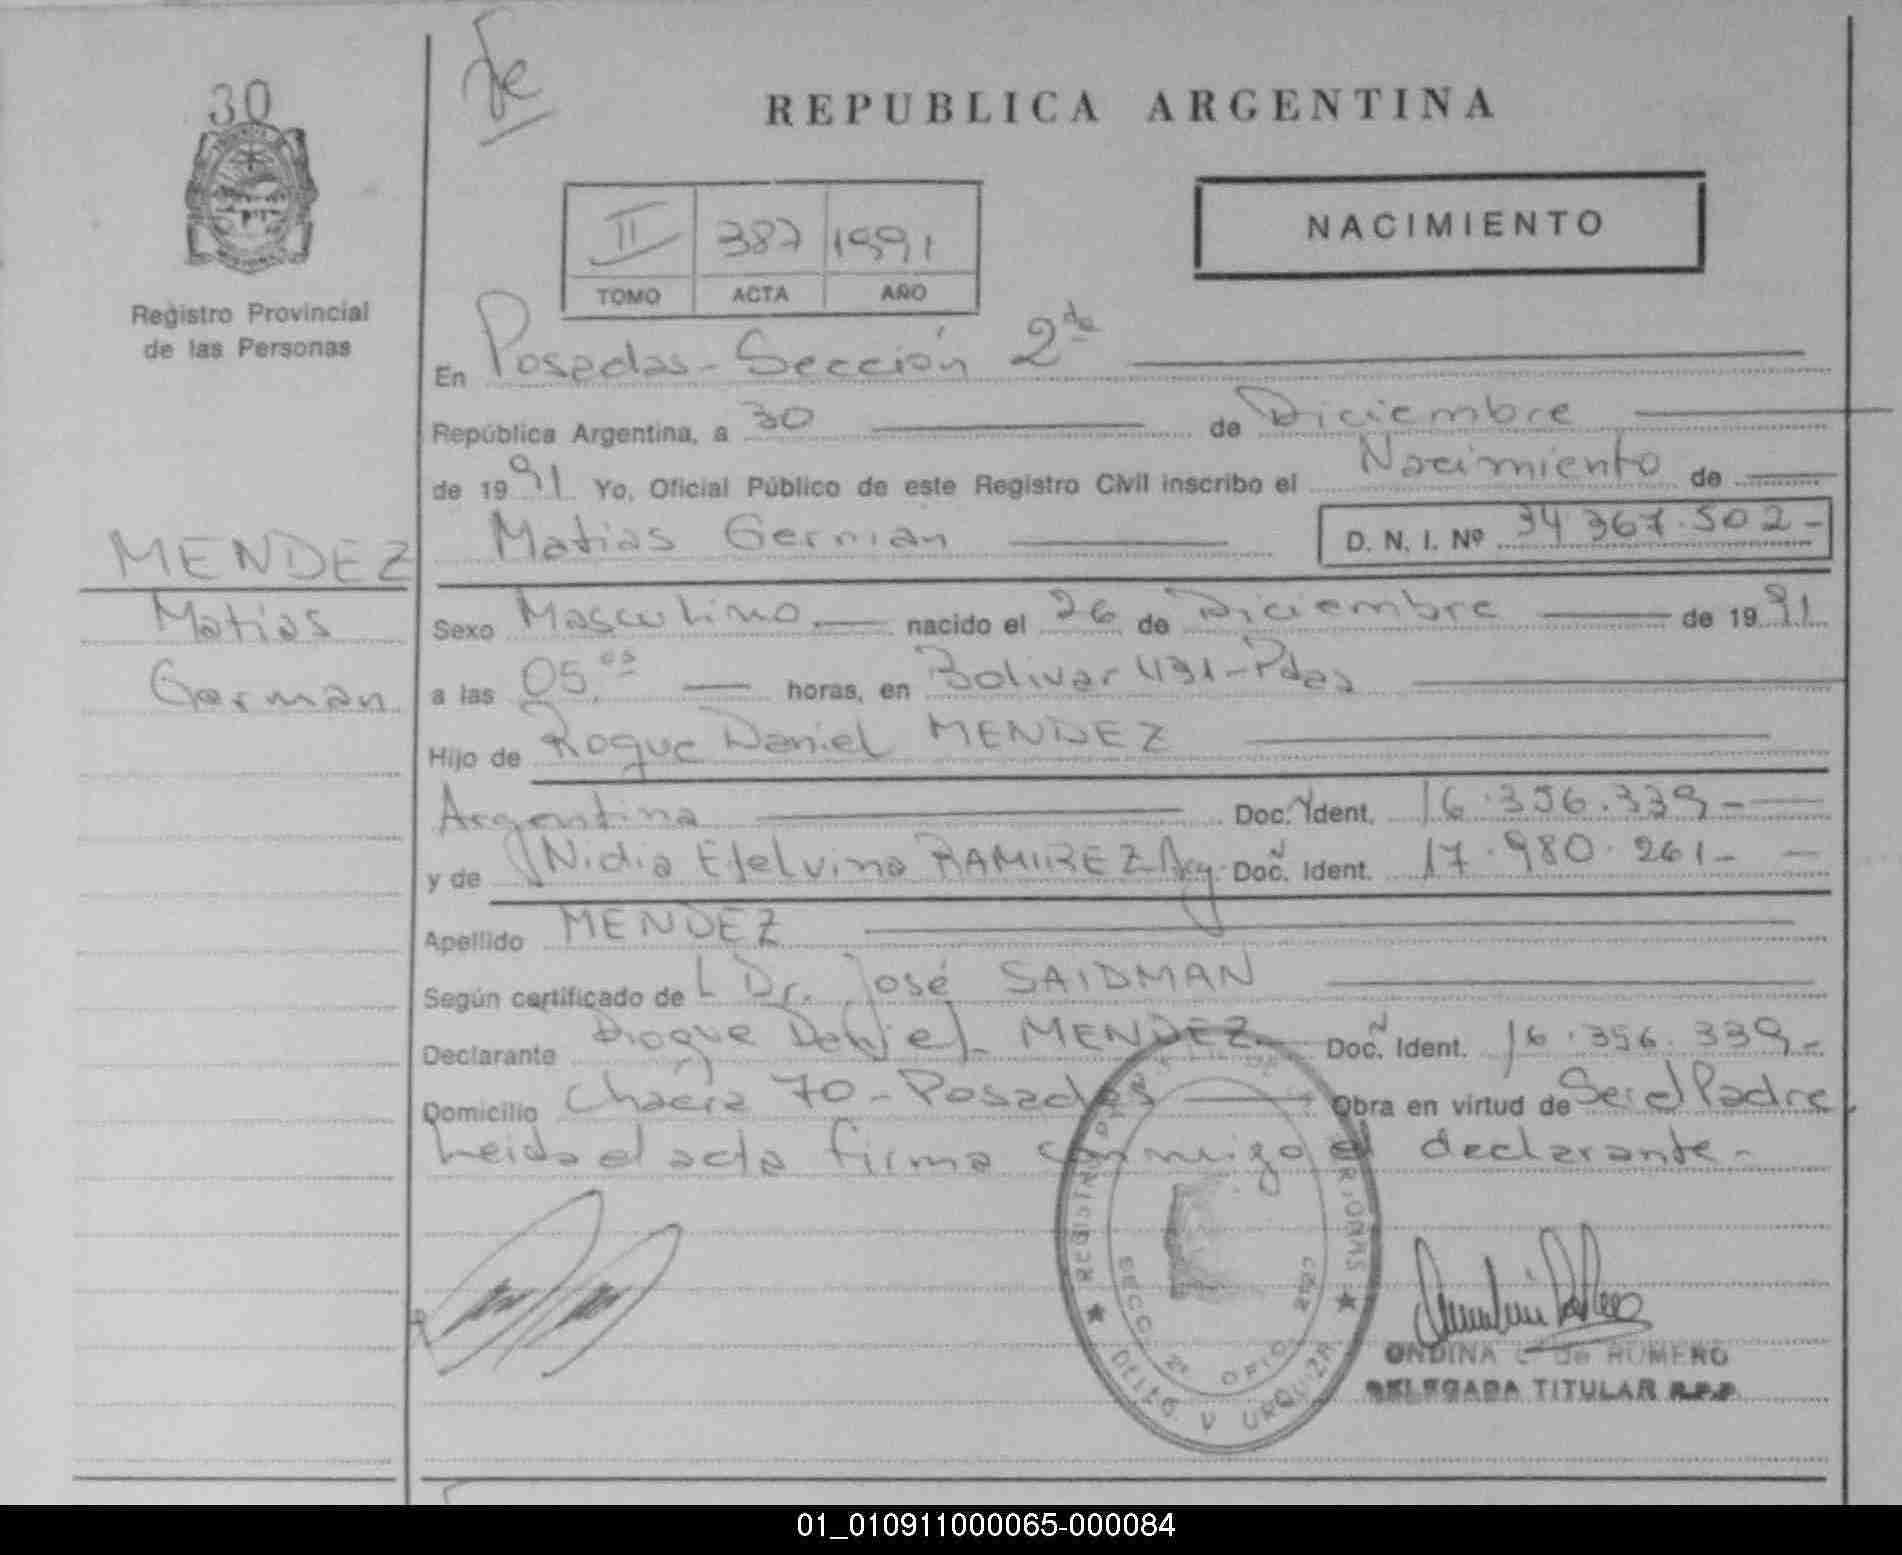 30
Registro Provincial
de las Personas
REPUBLICA ARGENTINA
NACIMIENTO
II 387 1991
TOMO ACTA AÑO
En Posadas - Sección 2da
República Argentina, a 30 de Diciembre
de 1991 Yo, Oficial Público de este Registro Civil inscribo el Nacimiento de
Matias Germán D. N. I. Nº 34 367.502-
MENDEZ
Matias
German
Sexo Masculino nacido el 26 de Diciembre de 1991
a las 05,05 horas, en Bolivar 431-Pdas
Hijo de Roque Daniel MENDEZ
Argentina Doc. Ident. 16.356.339-
y de Nidia Etelvina RAMIREZ Arg. Doc. Ident. 17.980.261-
Apellido MENDEZ
Según certificado de L Dr. José SAIDMAN
Declarante Roque Daniel MENDEZ Doc. Ident. 16.356.339-
Domicilio Chacra 70 - Posadas Obra en virtud de Ser el Padre
Leida el acta firma conmigo el declarante.-
SECC. 2ª OFIC.
DPTO. V URQUIZA
ONDINA de ROMERO
DELEGADA TITULAR R.P.P.
01_010911000065-000084